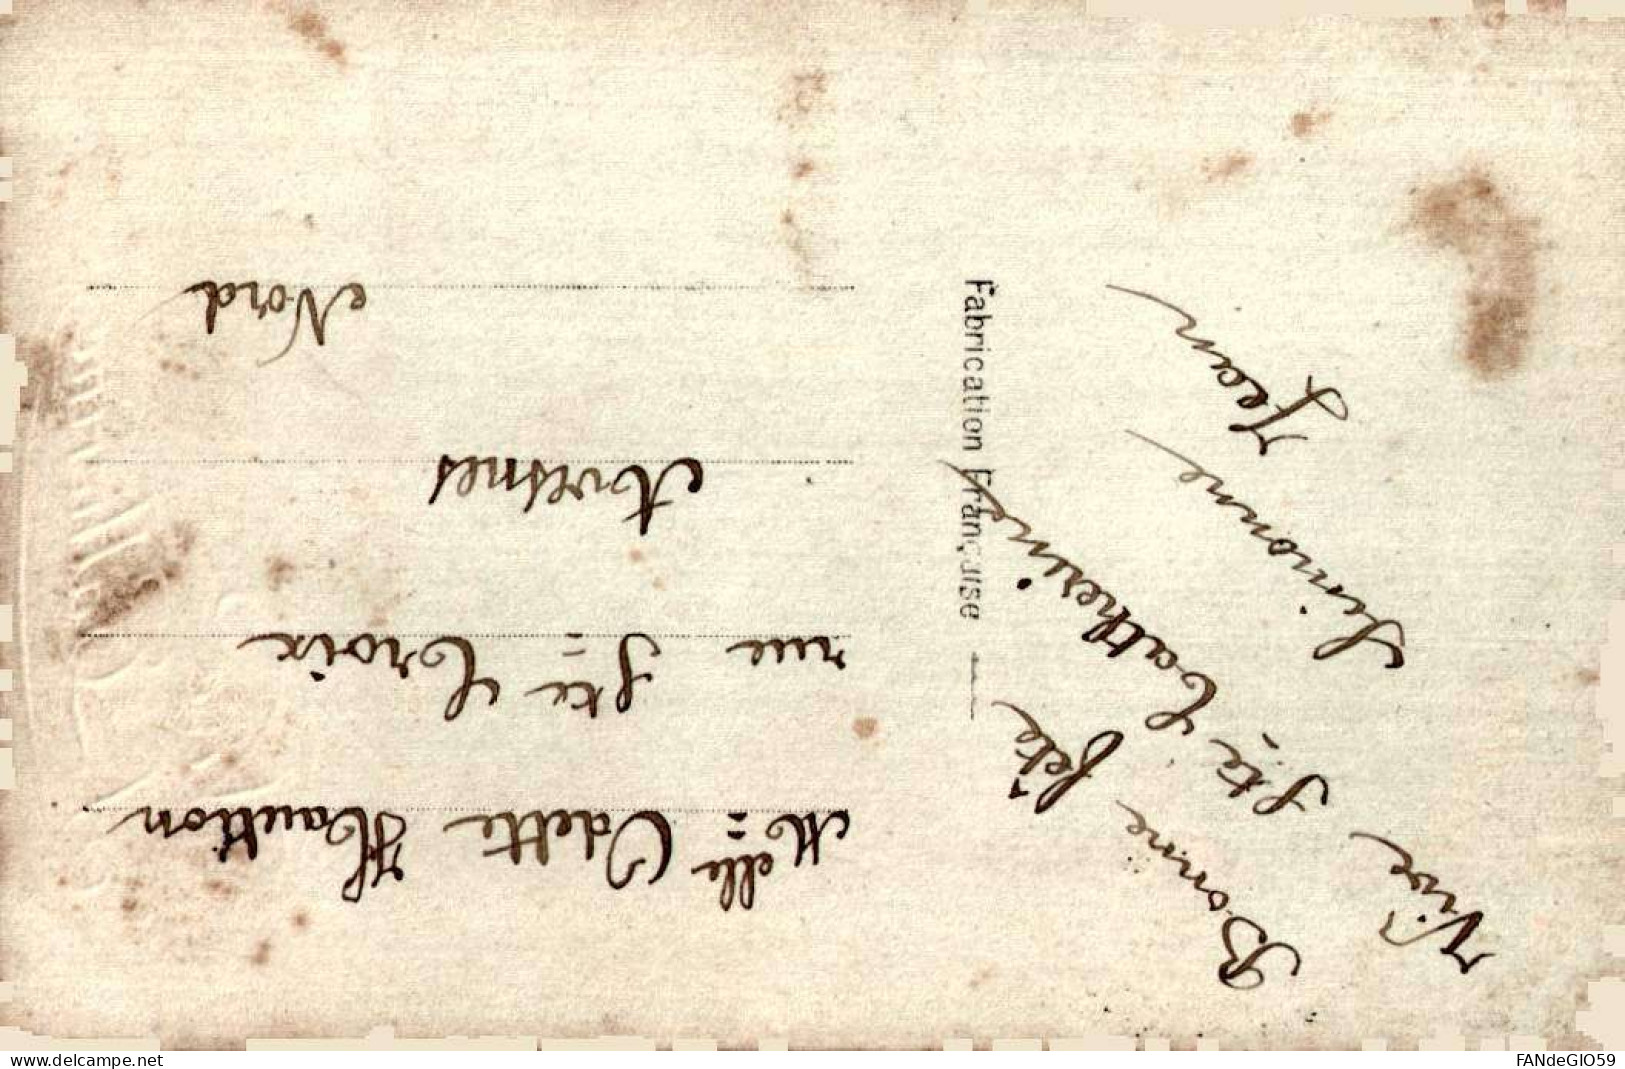 Vive Ste Catherine
Bonne fête
Simonne
Jean
Fabrication Française
Melle Odette Haution
rue Ste Croix
Avesnes
Nord
www.delcampe.net
FANdeGIO59